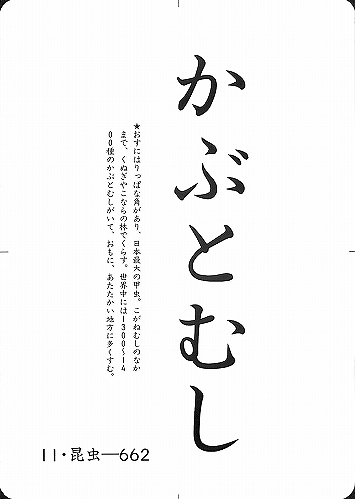 かぶとむし
★おすにはりっぱな角があり、日本最大の甲虫。こがねむしのなか
まで、くぬぎやこならの林でくらす。世界中には1300〜14
00種のかぶとむしがいて、おもに、あたたかい地方に多くすむ。
11・昆虫—662